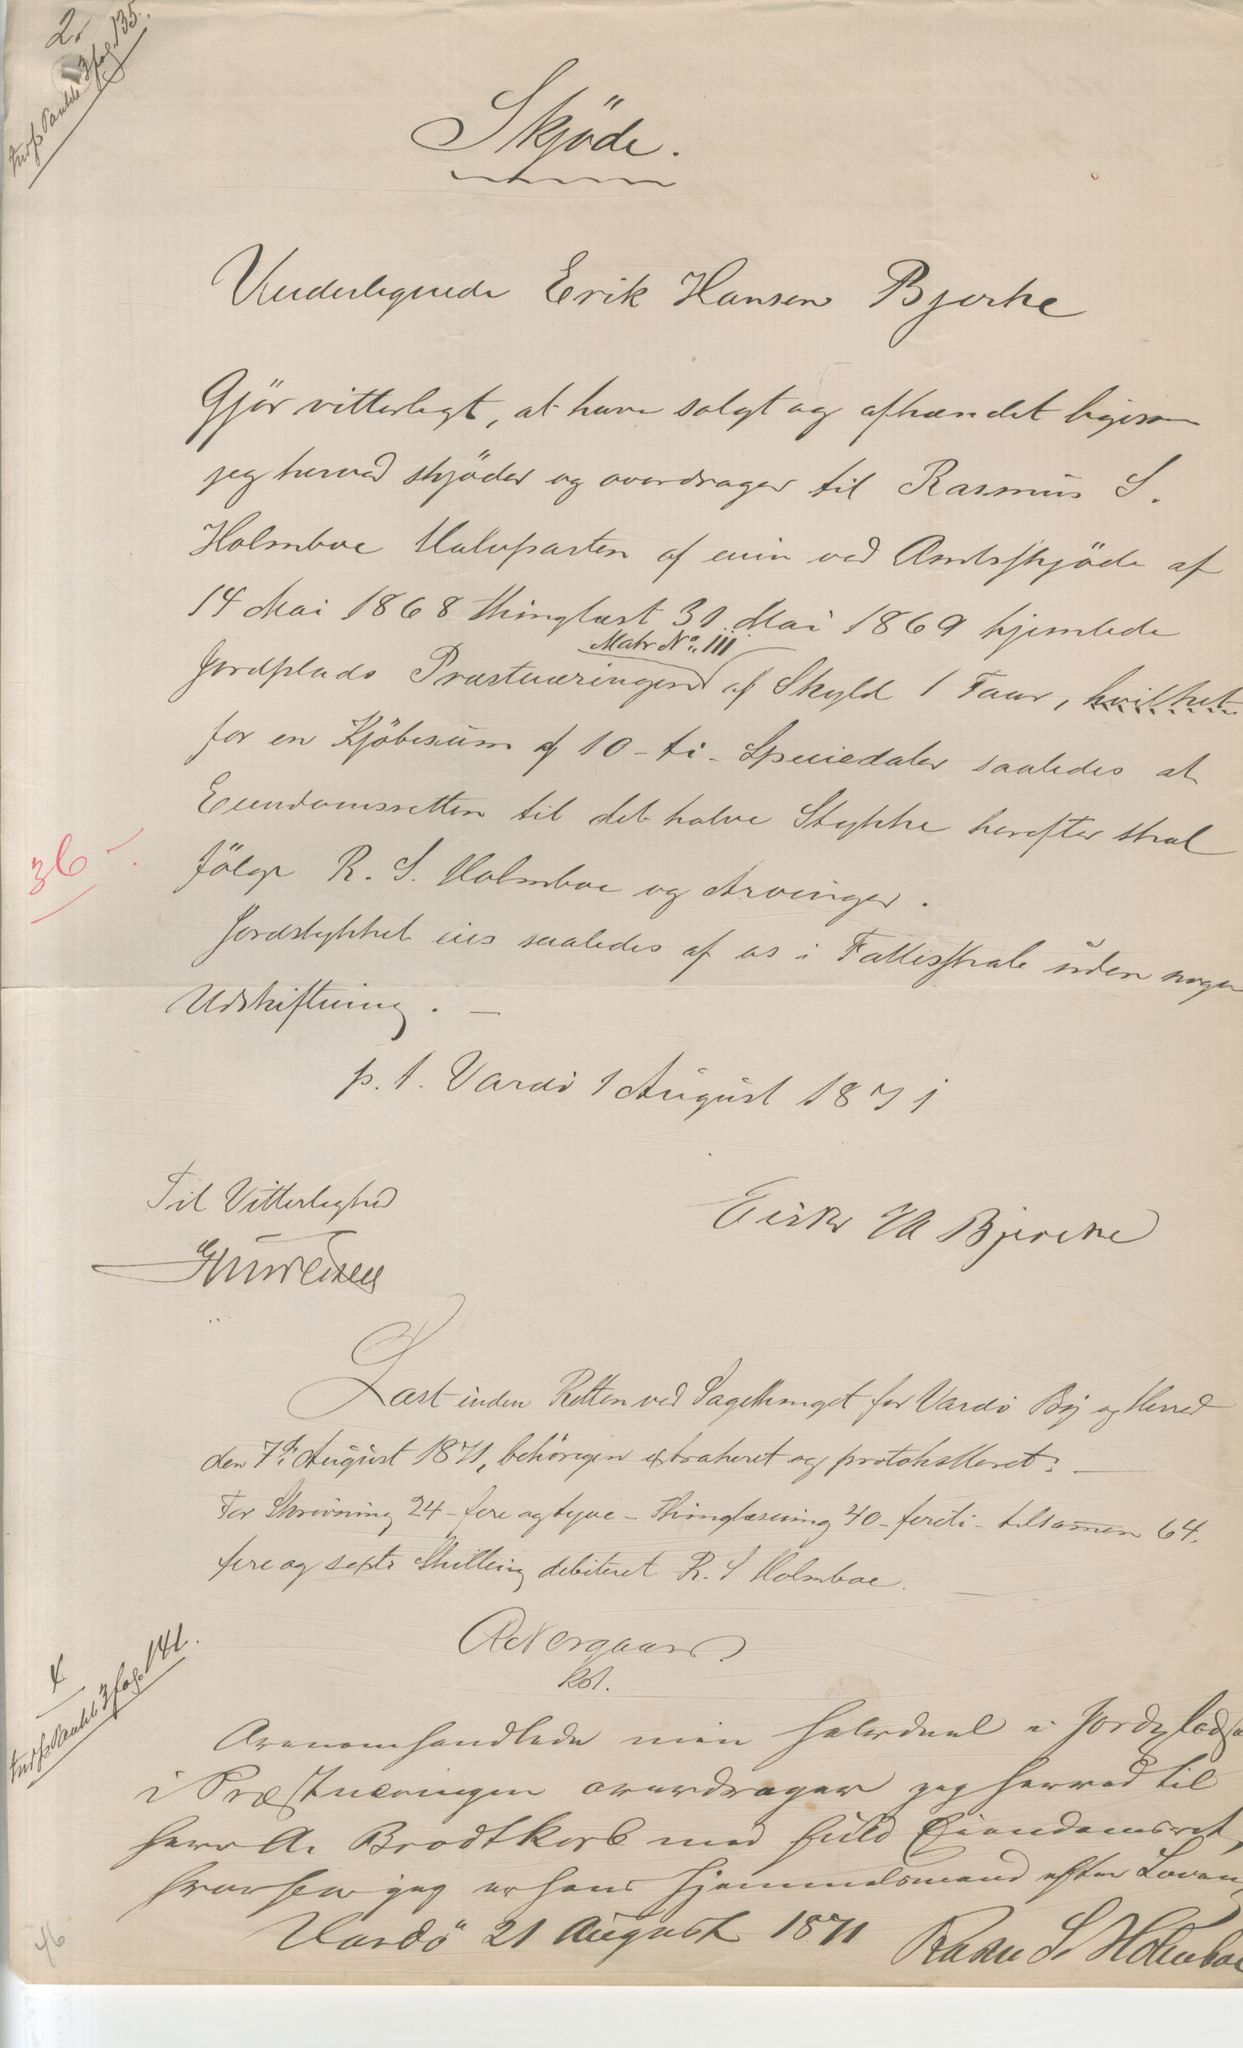 2.
indf. i Pantebk 3 fol. 135.
Skjöde.
Undertegnede Erik Hansen Bjerke
Gjör vitterligt, at have solgt og afhændet ligesom
jeg herved skjöder og overdrager til Rasmus S.
Holmboe Halvparten af min ved Amtsskjöde af
14 Mai 1868 thinglæst 31 Mai 1869 hjemlede
Matr No. III
Jordplads Præstværingen af Skyld 1 Faar, hvilket
for en Kjöbesum af 10 - ti - Speciedaler saaledes at
Eiendomsretten til det halve Stykke herefter skal
fölge R. S. Holmboe og Arvinger.
Jordstykket eies saaledes af os i Fællesskab uden nogen
Udskiftning. —
p. t. Vardö 1 August 1871
Til Vitterlighed
Eirik H Bjercke
Læst inden Retten ved Sagethinget for Vardö By og Herred
den 7de August 1871, behörigen extraheret og protokolleret; —
For Skrivning 24 - fire og tyve - Thinglæsning 40 - firti - tilsamen 64.
fire og sexti Skilling debiteret R. S. Holmboe. —
kst.
36 -
4
indf. i Pantebk 3 fol. 141.
Ovenomhandlede min halvdeel i Jordpladsen
i Præstværingen overdrager jeg herved til
Herr A. Brodtkorb med fuld Eiendomsret,
hvorfor jeg er hans Hjemmelsmand efter Loven,
Vardö 21 August 1871 Rasm S. Holmboe
46